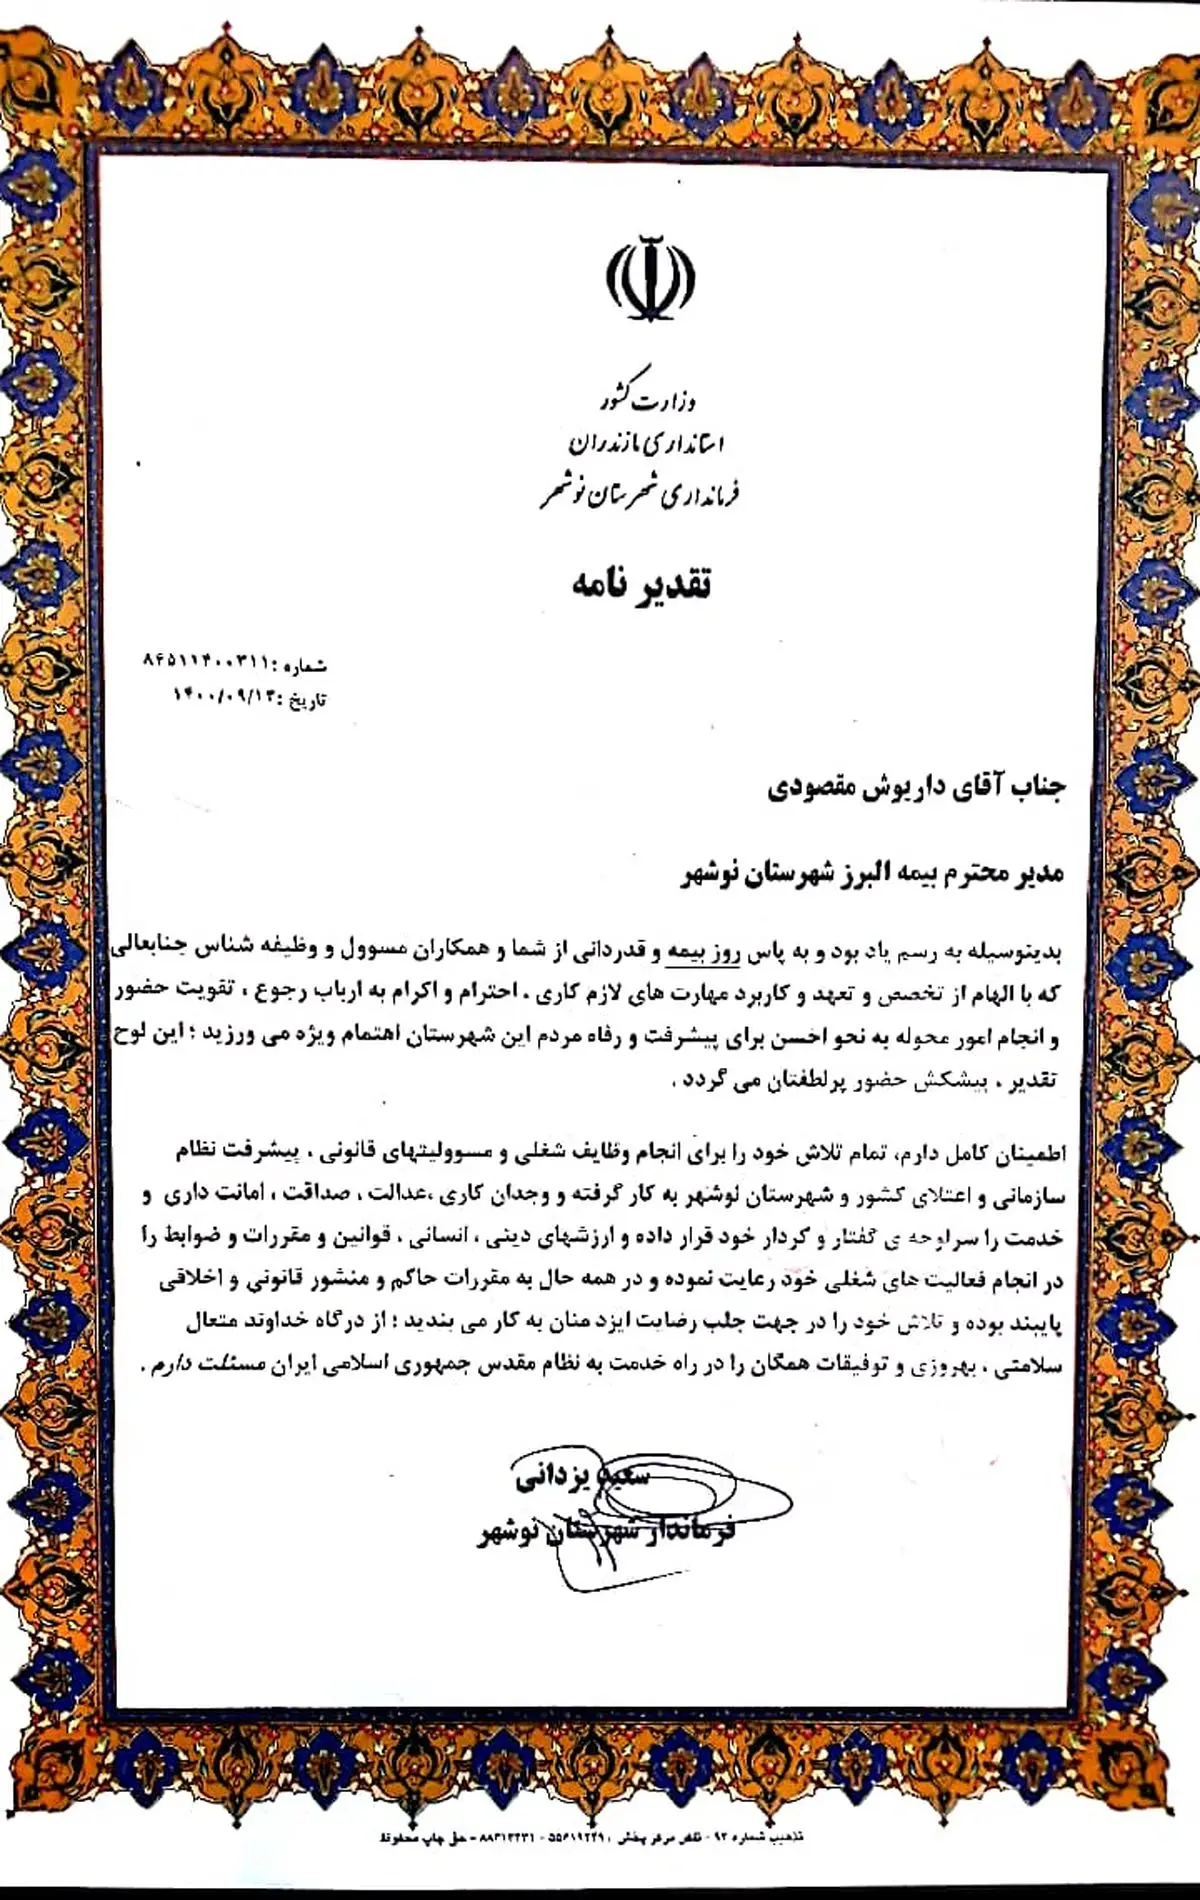 وزارت کشور
استانداری مازندران
فرمانداری شهرستان نوشهر
تقدیر نامه
شماره :۸۶۵۱۱۴۰۰۳۱۱
تاریخ :۱۴۰۰/۰۹/۱۳
جناب آقای داریوش مقصودی
مدیر محترم بیمه البرز شهرستان نوشهر
بدینوسیله به رسم یاد بود و به پاس روز بیمه و قدردانی از شما و همکاران مسوول و وظیفه شناس جنابعالی
که با الهام از تخصص و تعهد و کاربرد مهارت های لازم کاری ، احترام و اکرام به ارباب رجوع ، تقویت حضور
و انجام امور محوله به نحو احسن برای پیشرفت و رفاه مردم این شهرستان اهتمام ویژه می ورزید ؛ این لوح
تقدیر ، پیشکش حضور پرلطفتان می گردد .
اطمینان کامل دارم، تمام تلاش خود را برای انجام وظایف شغلی و مسوولیتهای قانونی ، پیشرفت نظام
سازمانی و اعتلای کشور و شهرستان نوشهر به کار گرفته و وجدان کاری ،عدالت ، صداقت ، امانت داری و
خدمت را سرلوحه ی گفتار و کردار خود قرار داده و ارزشهای دینی ، انسانی ، قوانین و مقررات و ضوابط را
در انجام فعالیت های شغلی خود رعایت نموده و در همه حال به مقررات حاکم و منشور قانونی و اخلاقی
پایبند بوده و تلاش خود را در جهت جلب رضایت ایزد منان به کار می بندید ؛ از درگاه خداوند متعال
سلامتی ، بهروزی و توفیقات همگان را در راه خدمت به نظام مقدس جمهوری اسلامی ایران مسئلت دارم .
سعید یزدانی
فرماندار شهرستان نوشهر
تذهیب شماره ۹۲ - تلفن مرکز پخش : - حق چاپ محفوظ